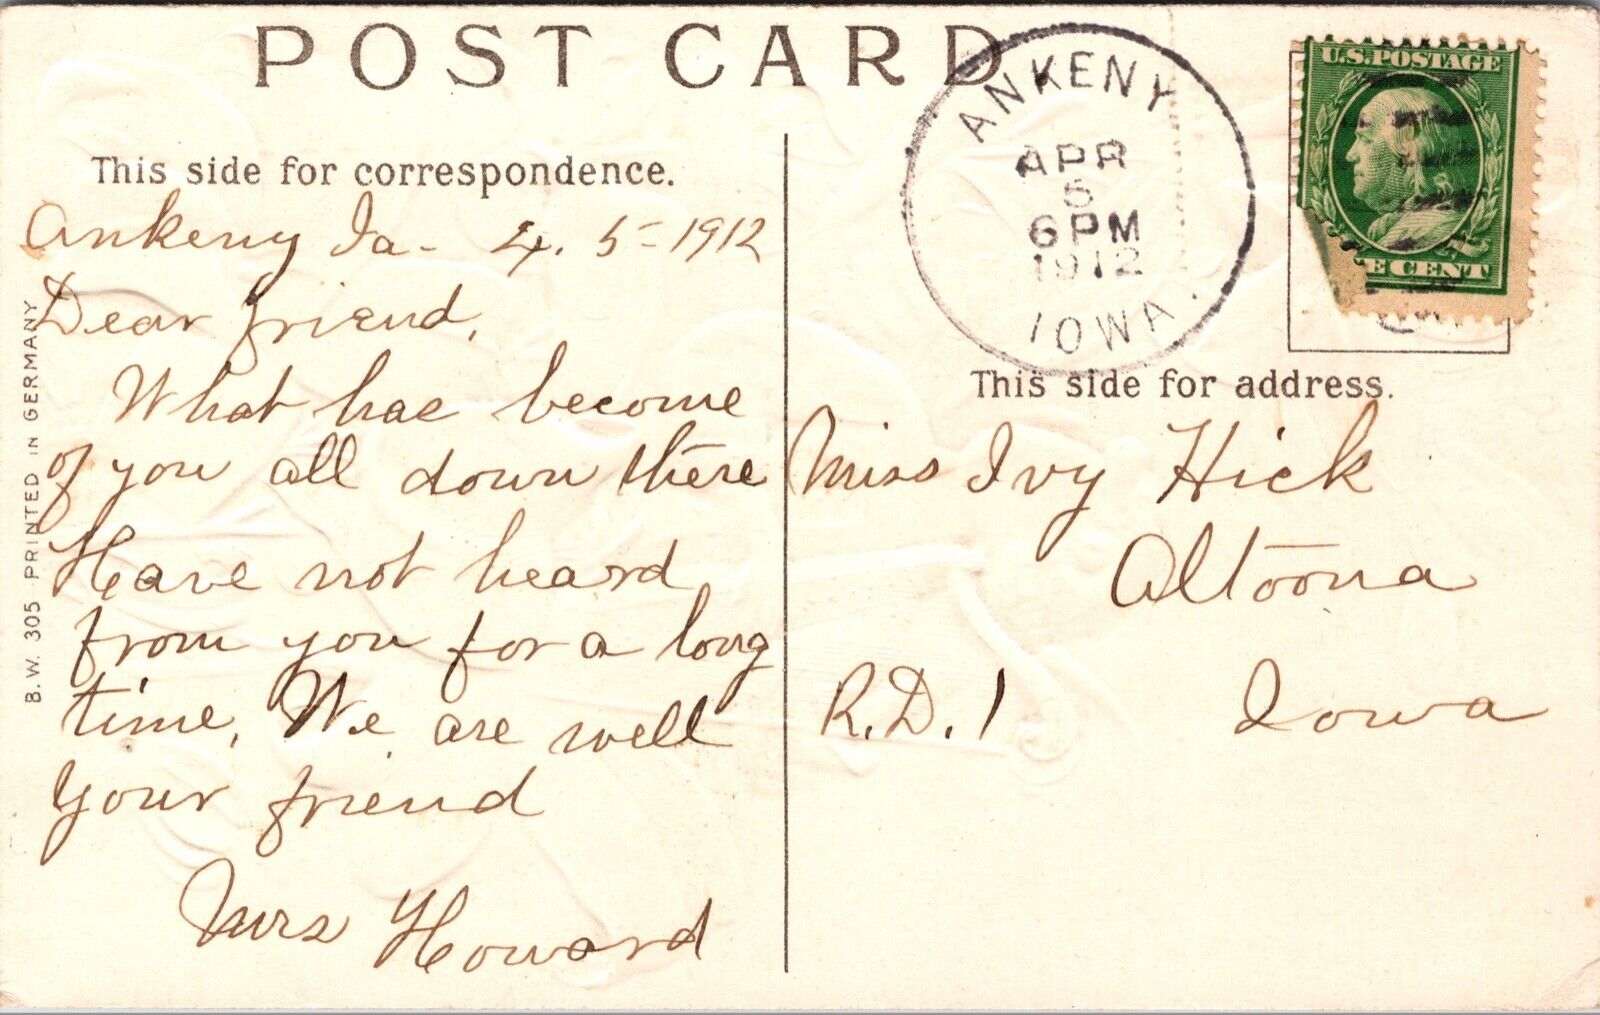 POST CARD
This side for correspondence.
Ankeny Ia - 4. 5 - 1912
Dear friend,
What hae become
of you all down there
Have not heard
from you for a long
time, We are well
your friend
Mrs Howard
B.W. 305 PRINTED IN GERMANY
ANKENY
APR
5
6 PM
1912
IOWA.
U.S. POSTAGE
E CENT
This side for address.
Miss Ivy Hick
Altoona
R.D. 1 Iowa